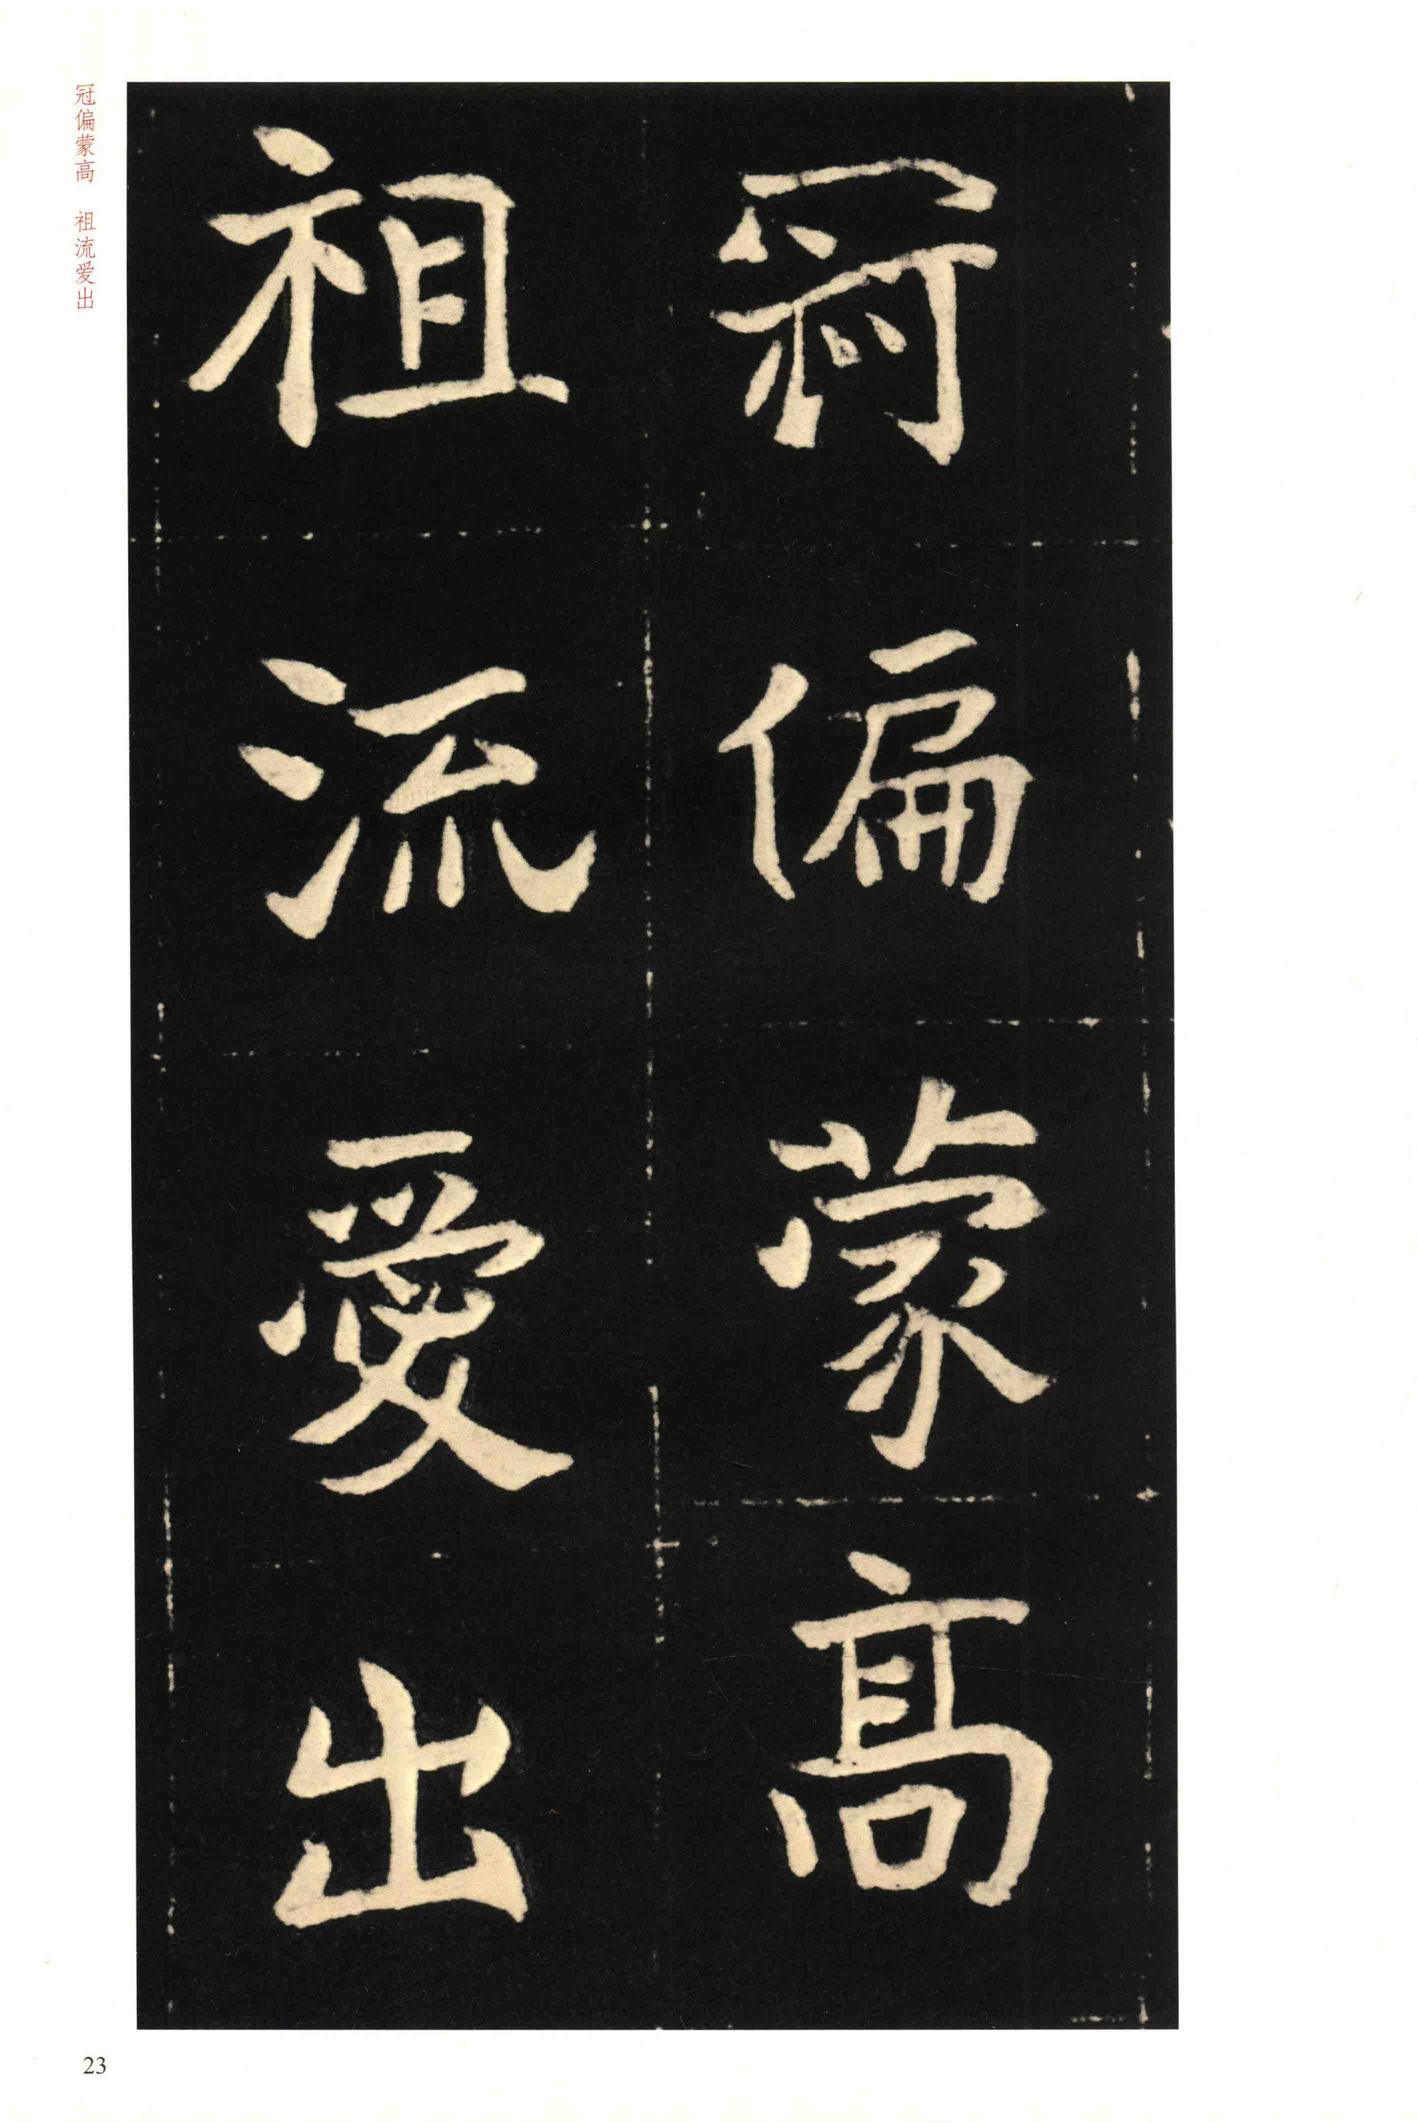 冠偏蒙高
祖流愛出
冠偏蒙高 祖流爱出
23